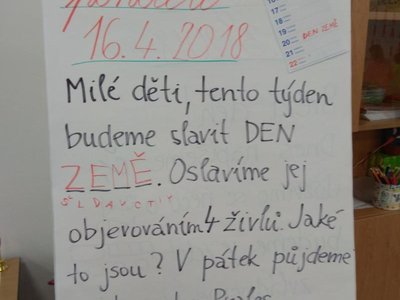 16.4.2018
DEN ZEMĚ
16
17
18
19
20
21
22
Milé děti, tento týden
budeme slavit DEN
ZEMĚ. Oslavíme jej
objevováním 4 živlů. Jaké
to jsou? V pátek půjdeme